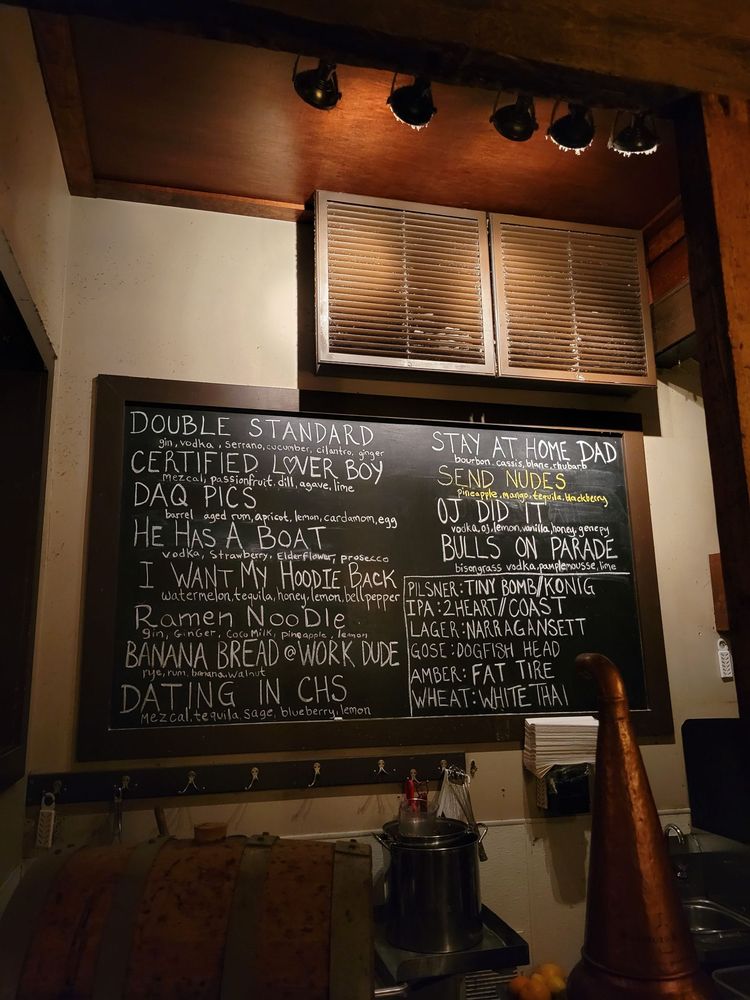 DOUBLE STANDARD
gin, vodka, serrano, cucumber, cilantro, ginger
CERTIFIED L♡VER BOY
mezcal, passionfruit, dill, agave, lime
DAQ PICS
barrel aged rum, apricot, lemon, cardamom, egg
HE HAS A BOAT
vodka, Strawberry, Elderflower, prosecco
I WANT MY HOODIE BACK
watermelon, tequila, honey, lemon, bellpepper
Ramen Noodle
gin, GinGer, CocoMilk, pineapple, lemon
BANANA BREAD @ WORK DUDE
rye, rum, banana, walnut
DATING IN CHS
Mezcal, tequila, sage, blueberry, lemon
STAY AT HOME DAD
bourbon, cassis, blanc, rhubarb
SEND NUDES
pineapple, mango, tequila, blackberry
OJ DID IT
vodka, oj, lemon, vanilla, honey, genepy
BULLS ON PARADE
bisongrass vodka, pamplemousse, lime
PILSNER: TINY BOMB/KONIG
IPA: 2HEART//COAST
LAGER: NARRAGANSETT
GOSE: DOGFISH HEAD
AMBER: FAT TIRE
WHEAT: WHITE THAI